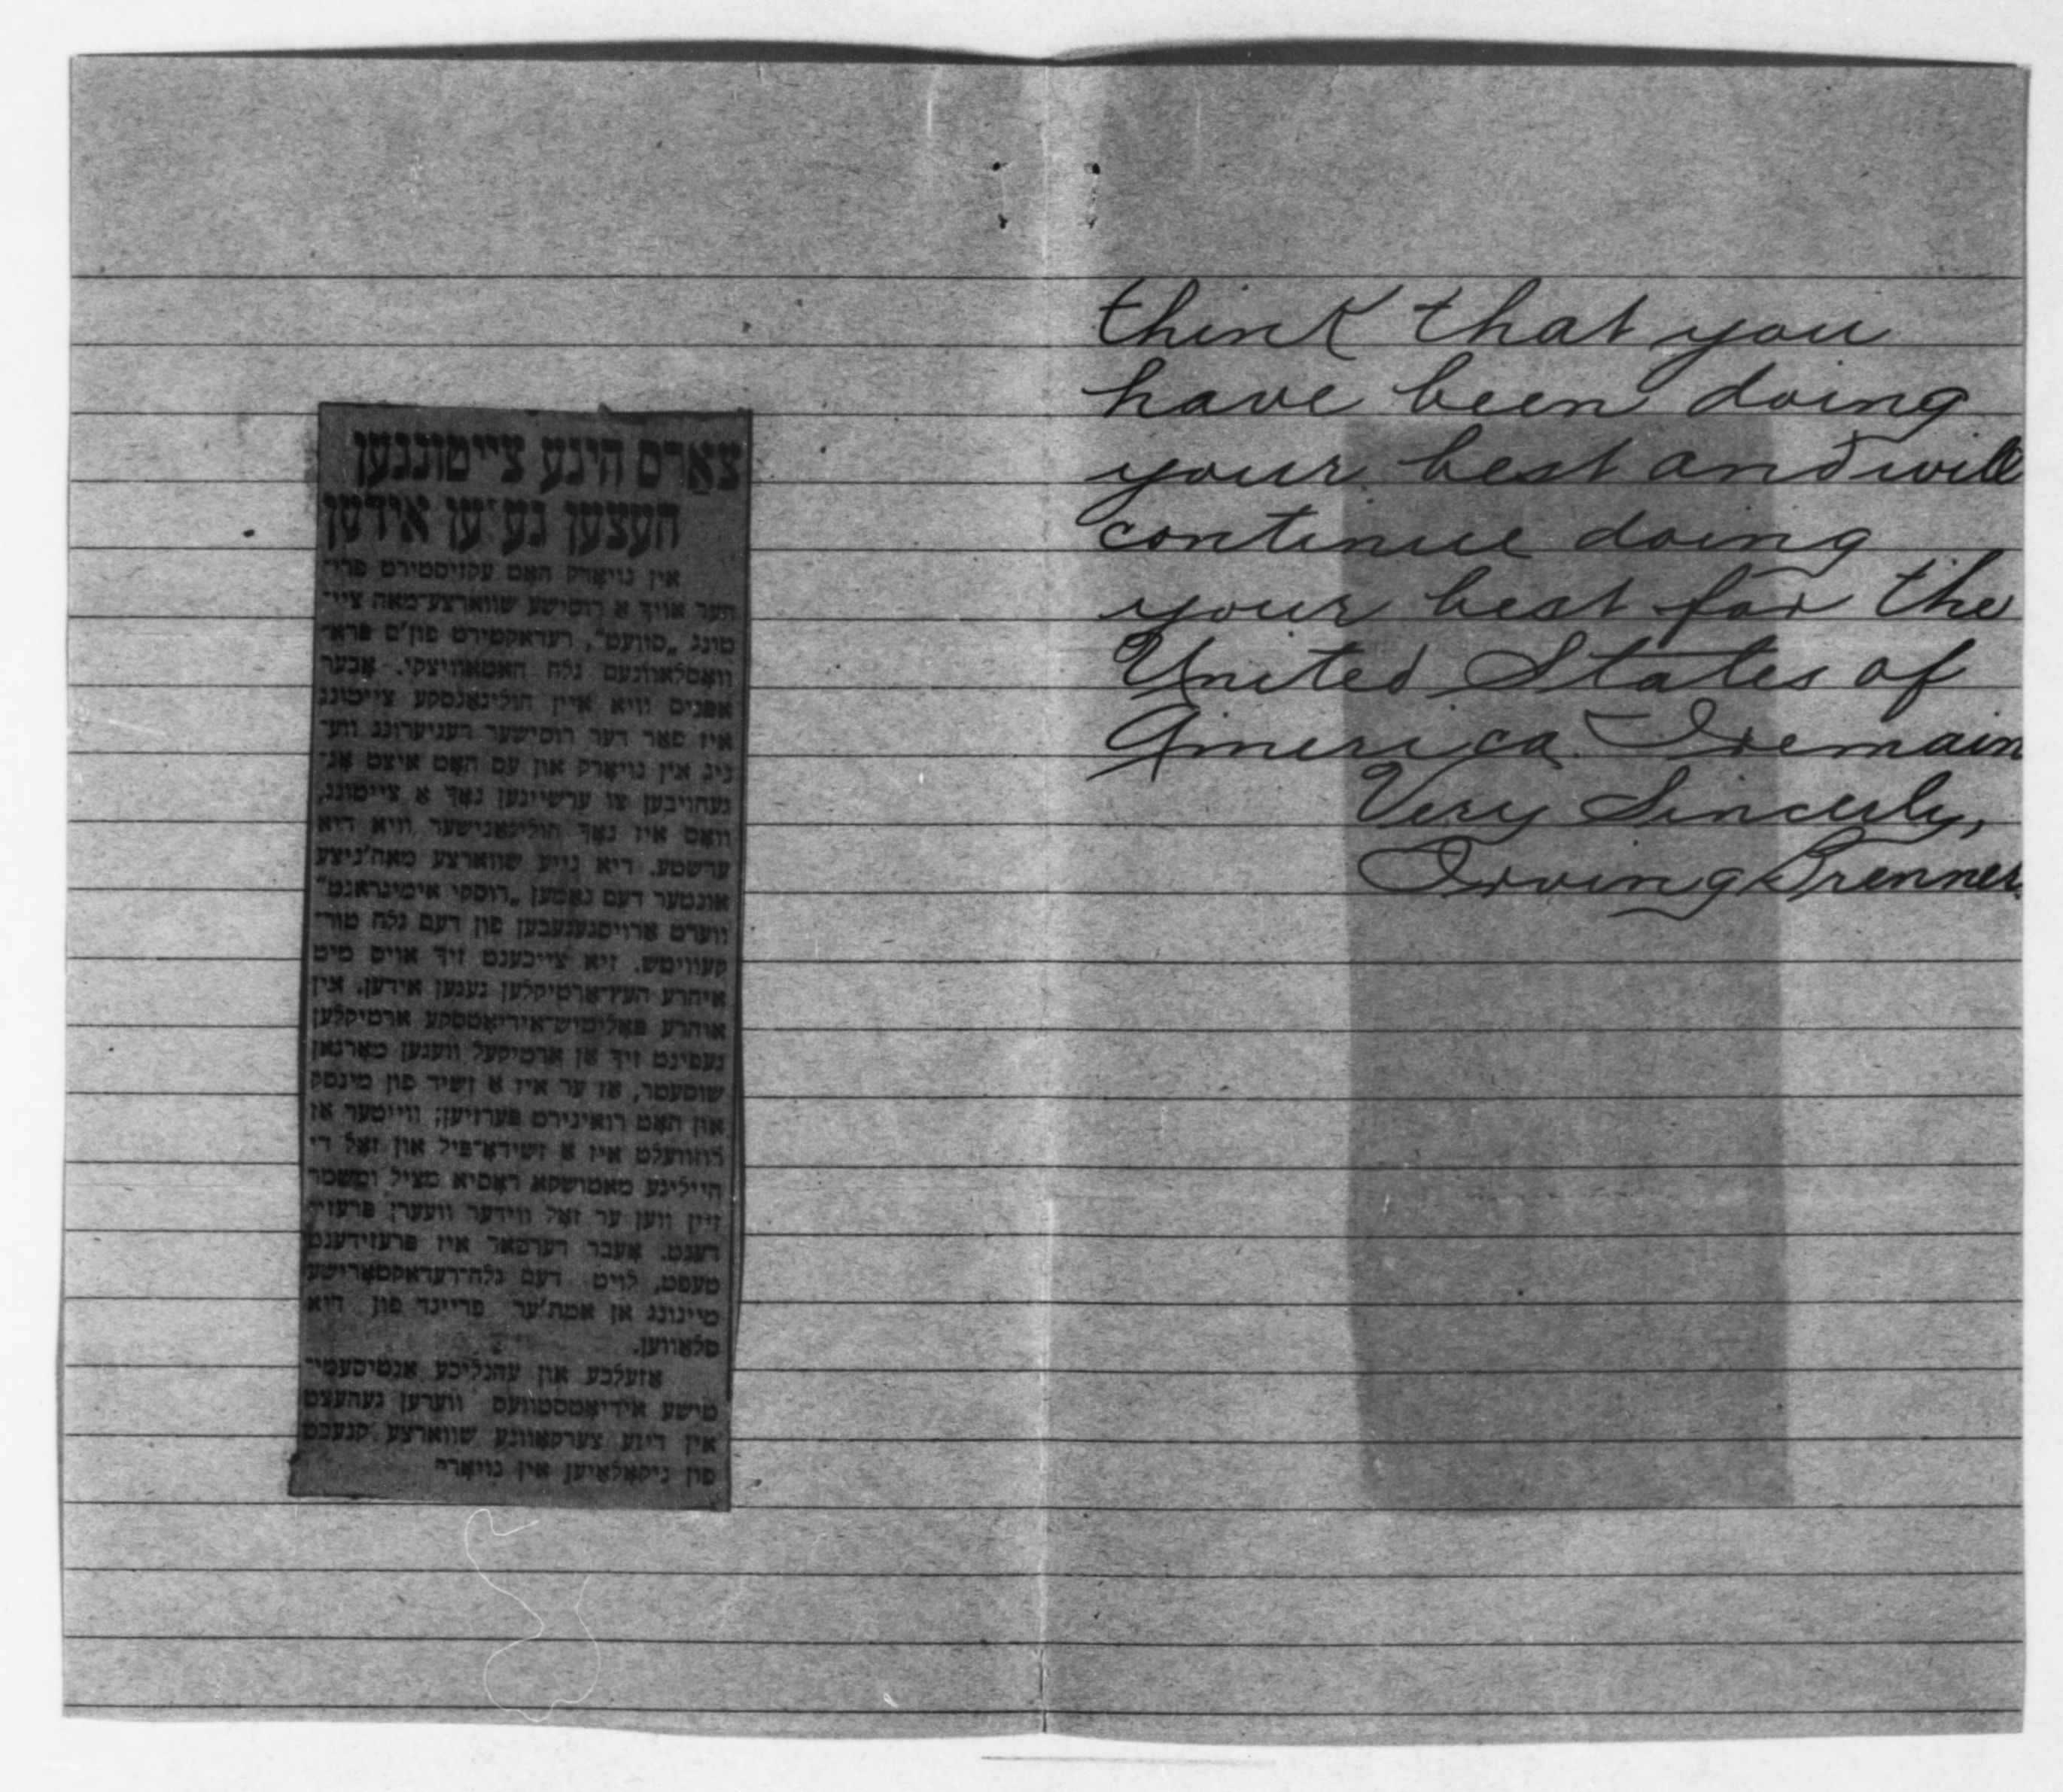 צאַרס הינע צייטונגען
העצען געגען אידען
אין נויארק האט עקזיסטירט פרי־
הער אויך א רוסישע שווארצע־מאה ציי־
טונג „סוועט", רעדאקטירט פון'ם פרא־
וואסלאוונעם גלח האטאוויצקי. אבער
אפנים וויא איין חוליגאנסקע צייטונג
איז פאר דער רוסישער רעגיערונג ווע־
ניג אין נויארק און עס האט איצט אנ־
געהויבען צו ערשיינען נאך א צייטונג,
וואס איז נאך חוליגאנישער וויא דיא
ערשטע. דיא נייע שווארצע מאה'ניצע
אונטער דעם נאמען „רוסקי אימיגראנט"
ווערט ארויסגעגעבען פון דעם גלח טור־
קעוויטש. זיא צייכענט זיך אויס מיט
איהרע העץ־ארטיקלען געגען אידען. אין
איהרע פאליטיש־אידיאטסקע ארטיקלען
געפינט זיך אן ארטיקעל וועגען מארגאן
שוסטער, אז ער איז א זשיד פון מינסק
און האט רואינירט פערזיען; ווייטער אז
רוזוועלט איז א זשידא־פיל און זאל די
הייליגע מאטושקא ראסיא מציל ומשמר
זיין ווען ער זאל ווידער ווערען פרעזי־
דענט. אבער דערפאר איז פרעזידענט
טעפט, לויט דעם גלח־רעדאקטארישע
מיינונג אן אמת'ער פריינד פון דיא
סלאווען.
אזעלכע און עהנליכע אנטיסעמי־
טישע אידיאטסטוועס ווערען געהעצט
אין דיזע צערקאוונע שווארצע קנעכט
פון ניקאלאיען אין נויארק
think that you
have been doing
your best and will
continue doing
your best for the
United States of
America I remain
Very Sincerly,
Irving Brenner.